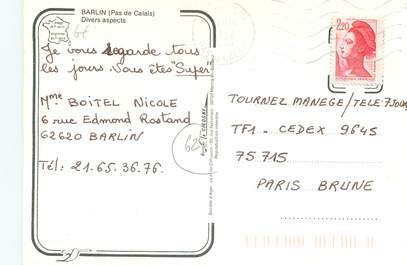 BARLIN (Pas de Calais)
Divers aspects
Je vous regarde tous
les jours. Vous êtes "Super"
Mme BOITEL NICOLE
6 rue Edmond Rostand
62620 BARLIN
Tél: 21.65.36.76.
2,20
TOURNEZ MANEGE/TELE 7 JOURS
TF1 - CEDEX 9645
75715
PARIS BRUNE